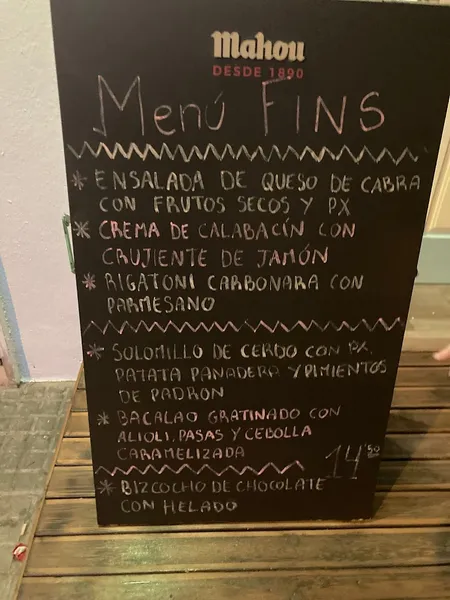 Mahou
DESDE 1890
Menú FINS
* ENSALADA DE QUESO DE CABRA
CON FRUTOS SECOS Y PX
* CREMA DE CALABACÍN CON
CRUJIENTE DE JAMÓN
* RIGATONI CARBONARA CON
PARMESANO
* SOLOMILLO DE CERDO CON PX.
PATATA PANADERA Y PIMIENTOS
DE PADRON
* BACALAO GRATINADO CON
ALIOLI, PASAS Y CEBOLLA
CARAMELIZADA
14'50
* BIZCOCHO DE CHOCOLATE
CON HELADO